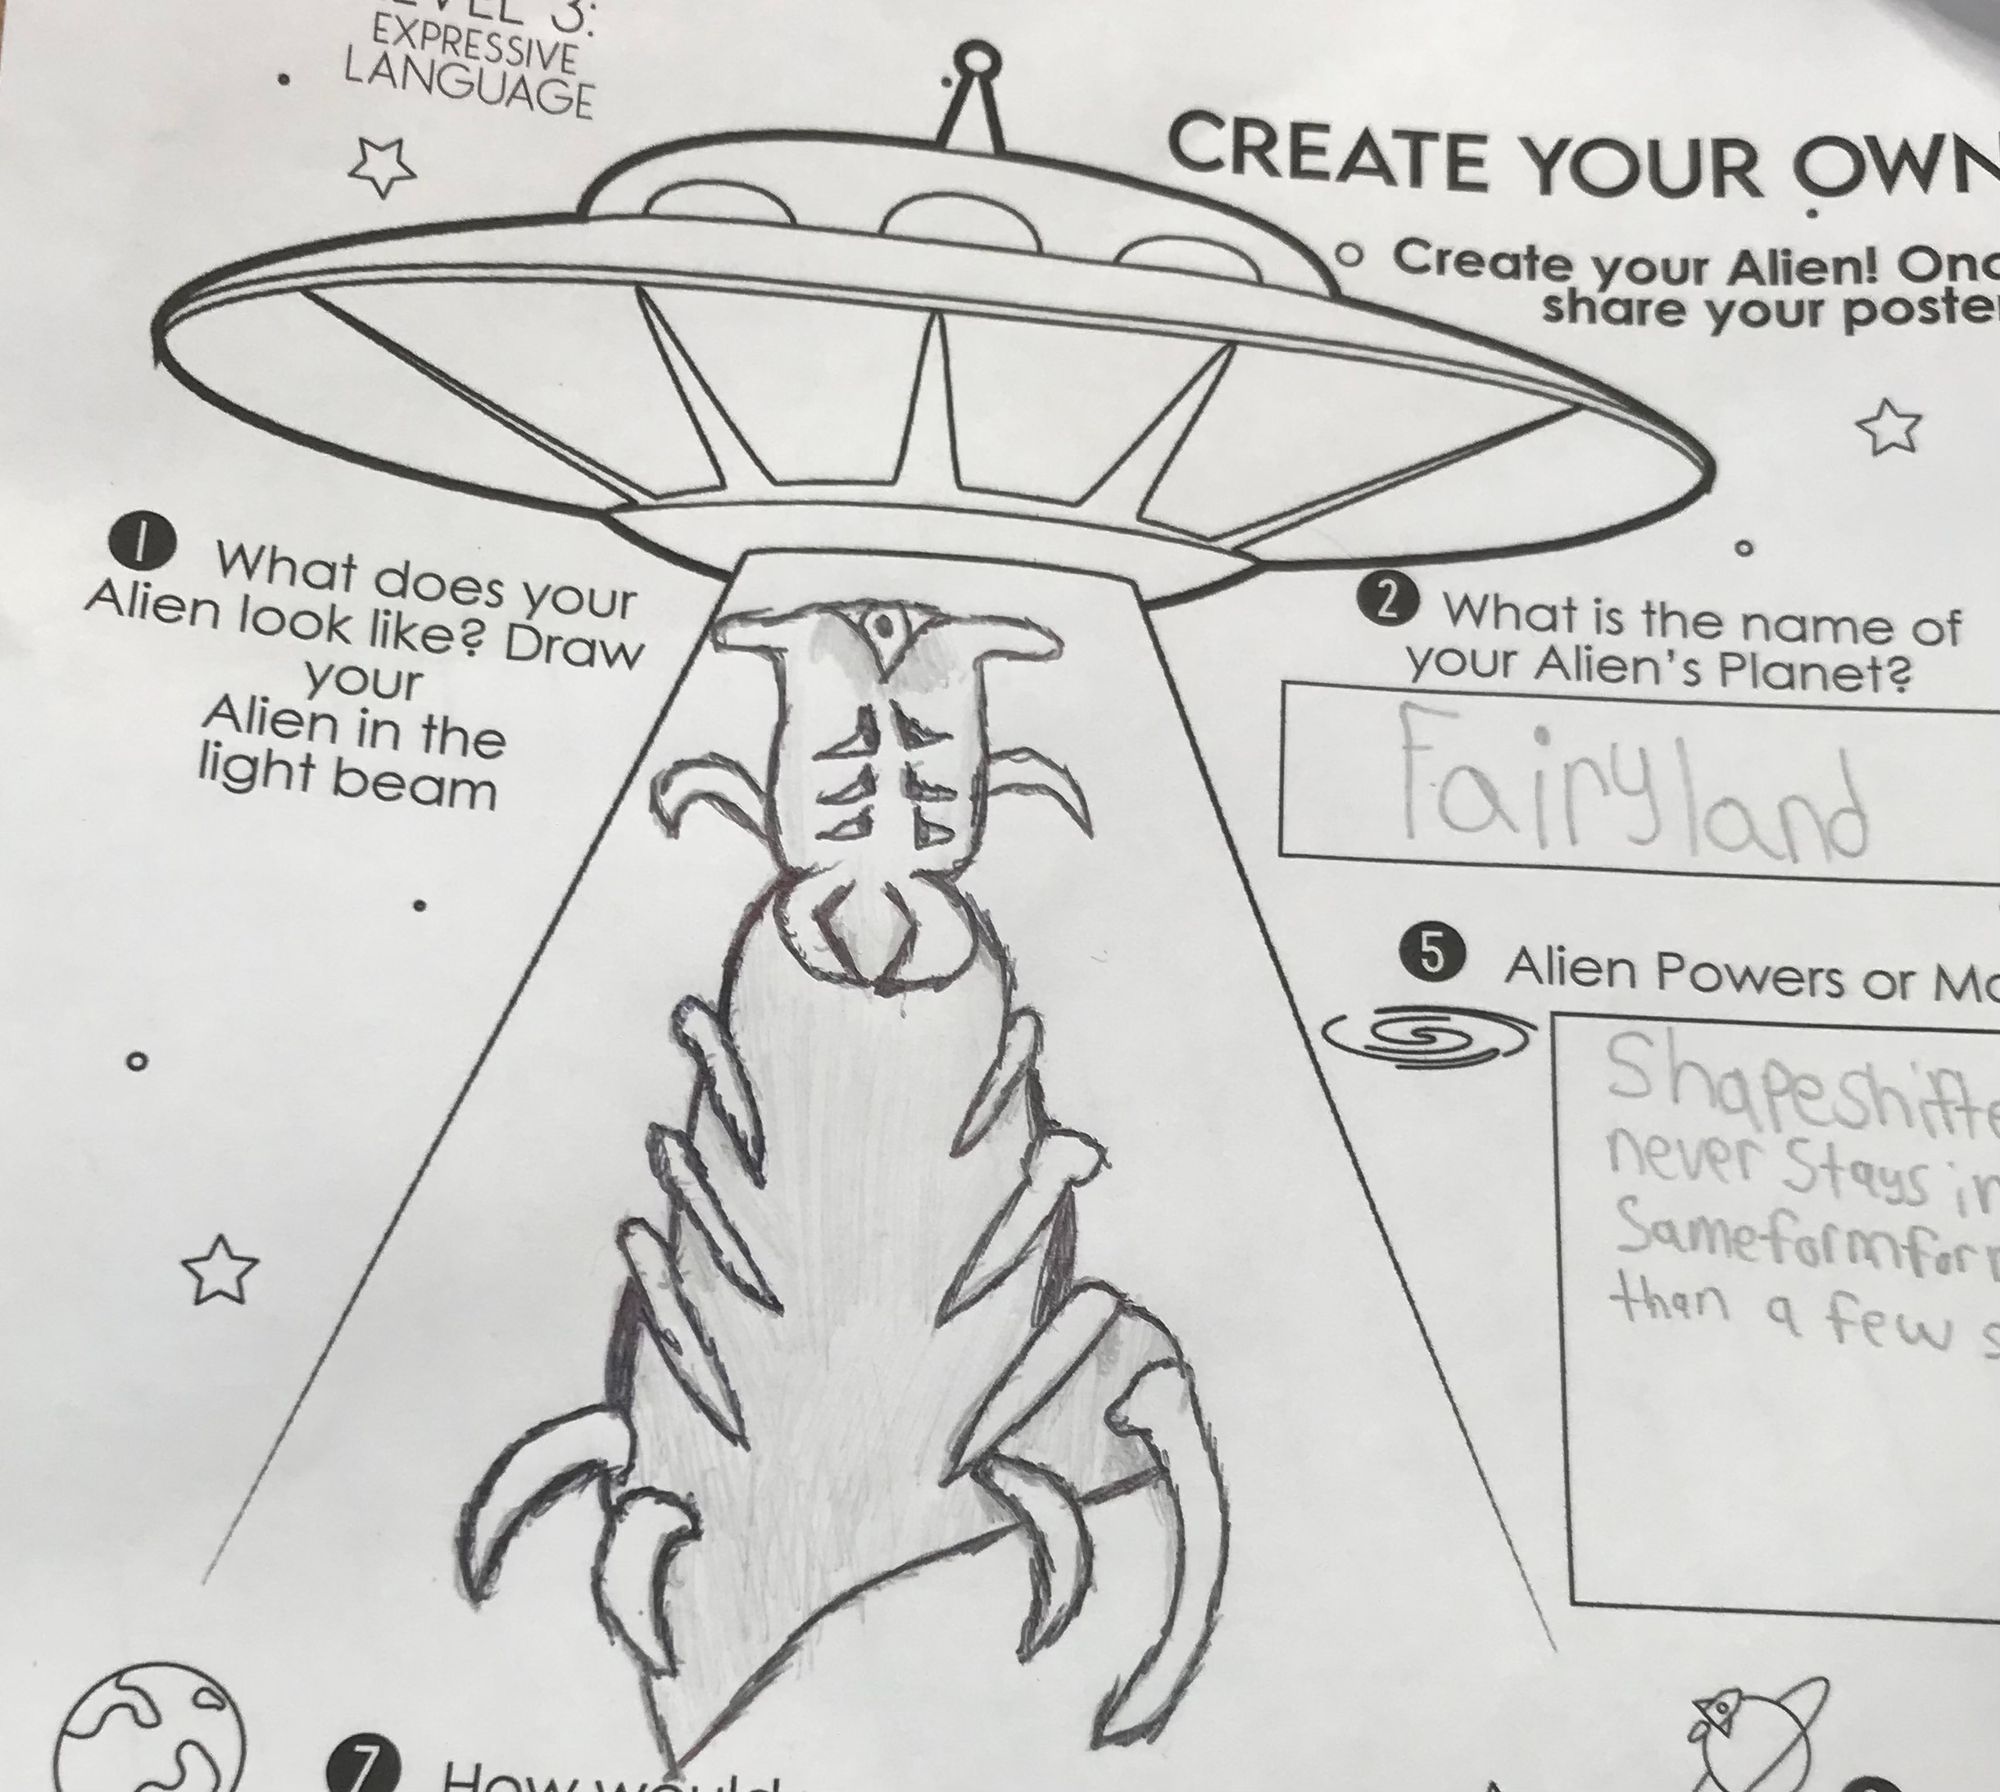 LEVEL 3:
EXPRESSIVE
LANGUAGE
CREATE YOUR OWN
Create your Alien! Onc
share your poster
1 What does your
Alien look like? Draw
your
Alien in the
light beam
2 What is the name of
your Alien's Planet?
Fairyland
5 Alien Powers or Mo
Shapeshifte
never Stays in
Same form for
than a few s
7 How would